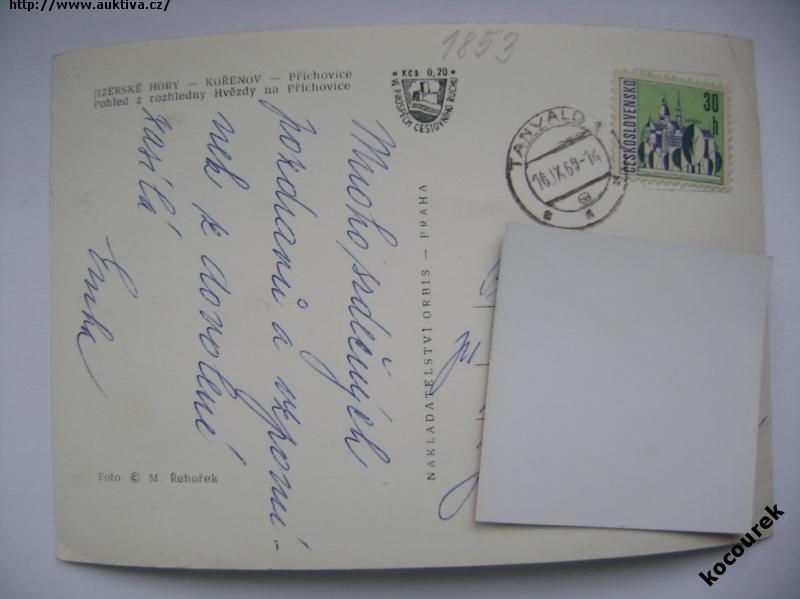 http://www.auktiva.cz/
1853
JIZERSKÉ HORY — KOŘENOV — Příchovice
Pohled z rozhledny Hvězdy na Příchovice
• Kčs 0,20 •
VE PROSPĚCH CESTOVNÍHO RUCHU
TANVALD 1
16.IX.69-14
ČESKOSLOVENSKO
30
h
Mnoho srdečných
pozdravů a vzpomí-
nek z dovolené
zasílá
NAKLADATELSTVÍ ORBIS — PRAHA
Foto © M. Řehořek
kocourek